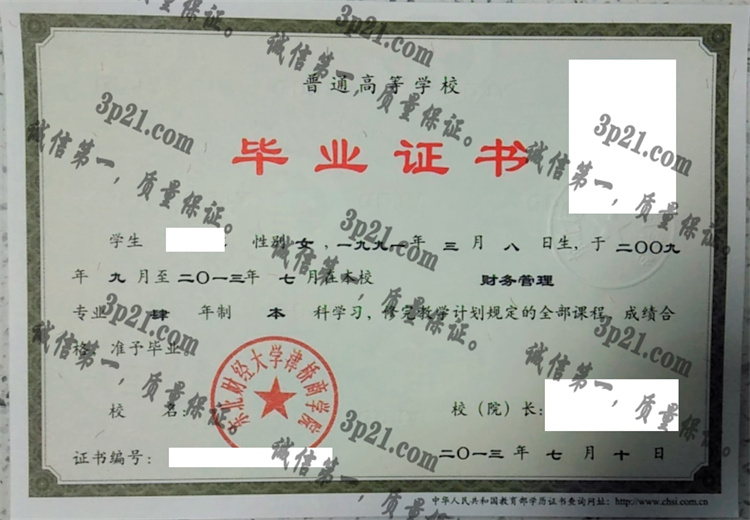 3p21.com
诚信第一，质量保证。
普通高等学校
3p21.com
诚信第一，质量保证。
3p21.com
诚信第一，质量保证。
毕业证书
学生 性别 女，一九九一年 三 月 八 日生，于 二〇〇九
年 九 月至 二〇一三年 七 月在本校 财务管理
专业 肆 年制 本 科学习，修完教学计划规定的全部课程，成绩合
格，准予毕业。
3p21.com
诚信第一，质量保证。
3p21.com
诚信第一，质量保证。
3p21.com
诚信第一，质量保证。
东北财经大学津桥商学院
校 名：
校（院）长：
3p21.com
诚信第一，质量保证。
证书编号：
二〇一三年 七 月 十 日
中华人民共和国教育部学历证书查询网址：http://www.chsi.com.cn